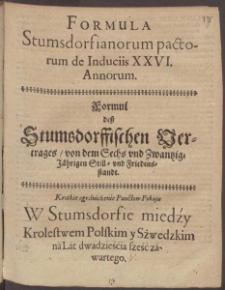 FORMULA
Stumsdorfianorum pacto-
rum de Induciis XXVI.
Annorum.
Formul
deß
Stumsdorffischen Ver-
trages / von dem Sechs vnd Zwantzig-
Jährigen Still- vnd Friedens-
standt.
Krotkie zgrániczánie Punctow Pokoju
W Stumsdorfie miedźy
Krolestwem Polskim y Szwedzkim
ná Lat dwadzieśćia sześć zá-
wartego,